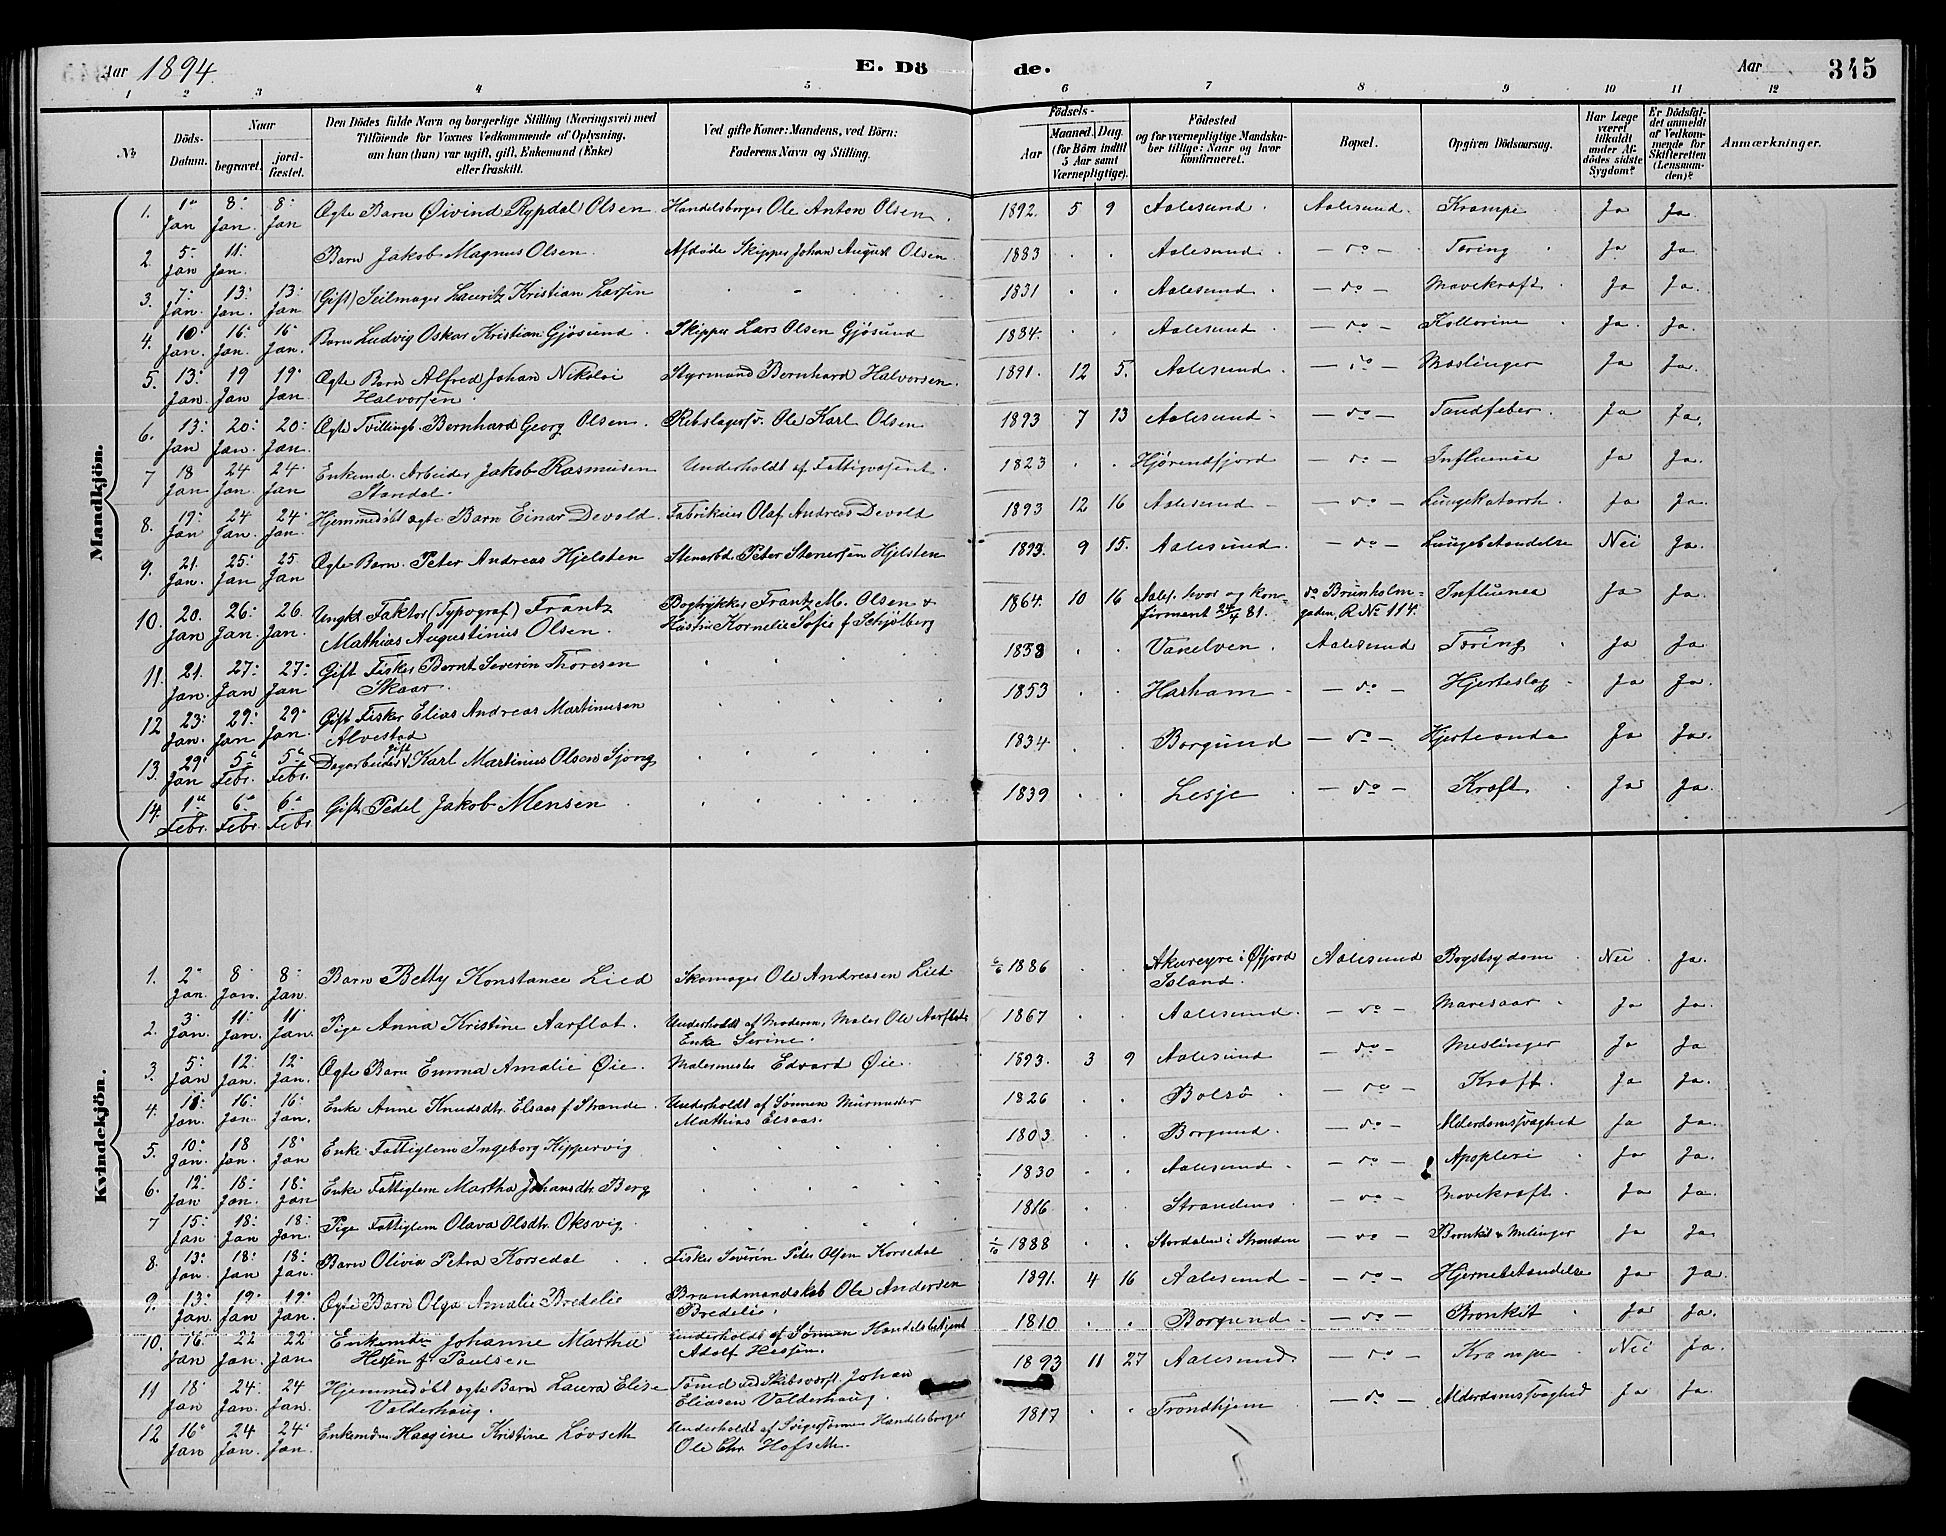 Aar 1894.
E. Dö de.
Aar 345
1 2 3 4 5 6 7 8 9 10 11 12
№
Döds-Datum.
Naar
begravet.
jord-fæstet.
Den Dödes fulde Navn og borgerlige Stilling (Næringsvei) med
Tilföiende for Voxnes Vedkommende af Oplysning,
om han (hun) var ugift, gift, Enkemand (Enke)
eller fraskilt.
Ved gifte Koner: Mandens, ved Börn:
Faderens Navn og Stilling.
Födsels-
Aar
Maaned. Dag.
(for Börn indtil
5 Aar samt
Værnepligtige).
Födested
og for værnepligtige Mandska-
ber tillige: Naar og hvor
konfirmeret.
Bopæl.
Opgiven Dödsaarsag.
Har Læge
været
tilkaldt
under Af-
dödes sidste
Sygdom?
Er Dödsfal-
det anmeldt
af Vedkom-
mende for
Skifteretten
(Lensman-
den)?
Anmærkninger.
Mandkjön.
1. 1' Jan 8' Jan. 8' Jan Ægte Barn Øivind Rypdal Olsen Handelsborger Ole Anton Olsen. 1892. 5 9 Aalesund. Aalesund. Krampe Ja Ja.
2. 5. Jan 11. Jan. Barn Jakob Magnus Olsen. Afdöde Skipper Johan August Olsen. 1883 Aalesund. – do – Tæring Ja Ja
3. 7. Jan. 13. Jan. 13. Jan (Gift) Seilmager Lauritz Kristian Larsen 1831 Aalesund. – do – Mavekræft. Ja Ja.
4. 10 Jan. 16. Jan. 16. Jan. Barn Ludvig Oskar Kristian Gjøsund. Skipper Lars Olsen Gjøsund 1884. Aalesund. – do – Kollerine Ja. Ja.
5. 13. Jan. 19 Jan 19. Jan. Ægte Barn Alfred Johan Nikolai
Halvorsen. Styrmand Bernhard Halvorsen. 1891. 12 5. Aalesund. – do – Mæslinger Ja Ja.
6. 13. Jan 20. Jan. 20. Jan. Ægte Tvillingb. Bernhard Georg Olsen. Rebslagersv. Ole Karl Olsen 1893 7 13 Aalesund – do – Tandfeber. Ja Ja.
7 18 Jan 24 Jan. 24. Jan Enkemd. Arbeider Jakob Rasmusen
Standal. Underholdt af Fattigvæsent. 1823 Hjørendfjord – do – Influensa Ja Ja
8. 19. Jan 24 Jan. 24. Jan. Hjemmedøbt ægte Barn Einar Devold. Fabrikeier Olaf Andreas Devold 1893 12 16 Aalesund – – do – Lungekatarrh. Ja Ja.
9. 21. Jan. 25. Jan 25. Jan Ægte Barn. Peter Andreas Hjelsten Stenarbd. Peter Stenersen Hjelsten 1893. 9 15. Aalesund. – do – Lungebetændelse Nei Ja.
10. 20. Jan 26. Jan. 26. Jan. Ungk. Faktor (Typograf) Frantz
Mathias Augustinus Olsen. Bogtrykker Frantz M. Olsen &
Hustru Kornelie Sofie f Schjølberg 1864. 10 16 Aales. hvor og kon-
firmert 24/4 81. do Brunholm-
gaden, R No 114. Influensa Ja Ja.
11. 21. Jan. 27. Jan 27. Jan Gift Fisker Bernt Severin Thoresen
Skaar. 1838 Vanelven. Aalesund Tæring Ja Ja.
12 23. Jan. 29. Jan 29. Jan Gift Fisker Elias Andreas Martinusen
Alvestad 1853 Harham – do – Hjerteslag Ja Ja.
13. 29. Jan 5. Febr. 5. Febr. Dagarbeider gift Karl Martinus Olsen Sjong 1834 Borgund – do – Hjerteonde Ja Ja.
14. 1. Febr. 6. Febr. 6. Febr. Gift Pedel Jakob Mensen 1839 Lesje – do – Kræft Ja Ja.
Kvindekjön.
1. 2. Jan. 8. Jan. 8. Jan. Barn Betty Konstance Lied Skomager Ole Andreasen Lied 1886 Akureyre i Øfjord
Island. Aalesund Brystsygdom Nei Ja.
2. 3. Jan. 11. Jan. 11. Jan. Pige Anna Kristine Aarflot. Underholdt af Moderen, Maler Ole Aarflots
Enke Serine. 1867 Aalesund. – do – Mavesaar Ja Ja.
3. 5. Jan 12. Jan. 12. Jan. Ægte Barn Emma Amalie Øie. Malermester Edvard Øie. 1893. 3 9 Aalesund – do – Meslinger Ja Ja
4. 11. Jan. 16. Jan. 16. Jan. Enke Anne Knudsdtr. Elsaas f Strande. Underholdt af Sønnen Murmester
Mathias Elsaas. 1826 Bolsø – do – Kræft. Ja Ja.
5. 10. Jan. 18 Jan. 18. Jan Enke Fattiglem Ingeborg Kippervig 1803 Borgund. – do – Alderdomssvaghed Ja Ja.
6. 12. Jan 18. Jan. 18. Jan Enke Fattiglem Martha Johansdtr. Berg 1830 Aalesund – do – Apoplexi Ja Ja.
7 15. Jan 18. Jan 18. Jan. Pige Fattiglem Olava Olsdtr. Oksvig. 1816 Strandens – do – Mavekræft. Ja Ja.
8. 13. Jan 18. Jan 18. Jan. Barn Olivia Petra Korsedal Fisker Severin Peter Olsen Korsedal 1888 Stordalen i Stranden – do – Bronkit & Melinger Ja Ja.
9. 13. Jan. 19. Jan. 19. Jan. Ægte Barn Olga Amalie Bredelie Brandmandskab Ole Andersen
Bredelie. 1891. 4 16 Aalesund – – do – Hjernebetændelse Ja Ja.
10. 16. Jan 22 Jan. 22 Jan. Johanne Martha
Hessen f. Paulsen Underholdt af Sønnen
Adolf Hessen. 1810 Borgund – – do – Bronkit Ja Ja.
11 18. Jan 24. Jan. 24 Jan. Hjemmedøbt ægte Barn Laura Elise
Valderhaug. Tømd ved Skibsværft. Johan
Eliasen Valderhaug. 1893 11 27 Aalesund. – do – Krampe Nei Ja.
12 16. Jan 24 Jan. 24. Jan. Haagine Kristine Løvseth Underholdt af Svigersønnen Handelsborger
Ole Chr. Hofseth. 1817 Trondhjem – do – Alderdomssvaghed Ja Ja.